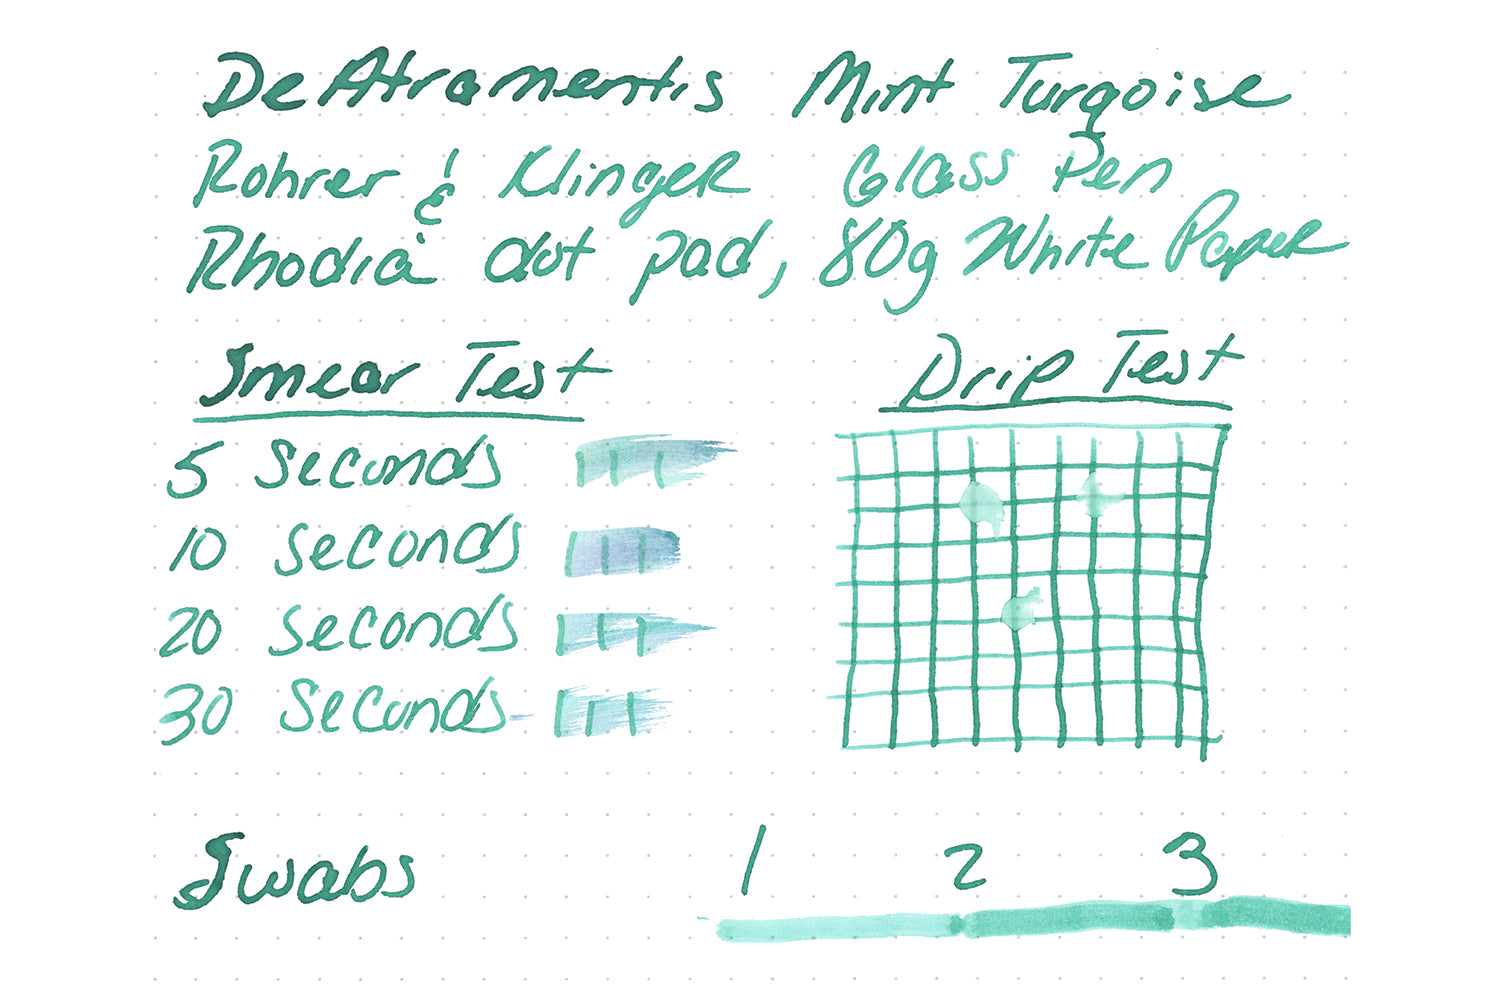 DeAtramentis Mint Turqoise
Rohrer & Klinger Glass Pen
Rhodia dot pad, 80g White Paper
Smear Test
Drip Test
5 Seconds
10 Seconds
20 Seconds
30 Seconds
Swabs 1 2 3